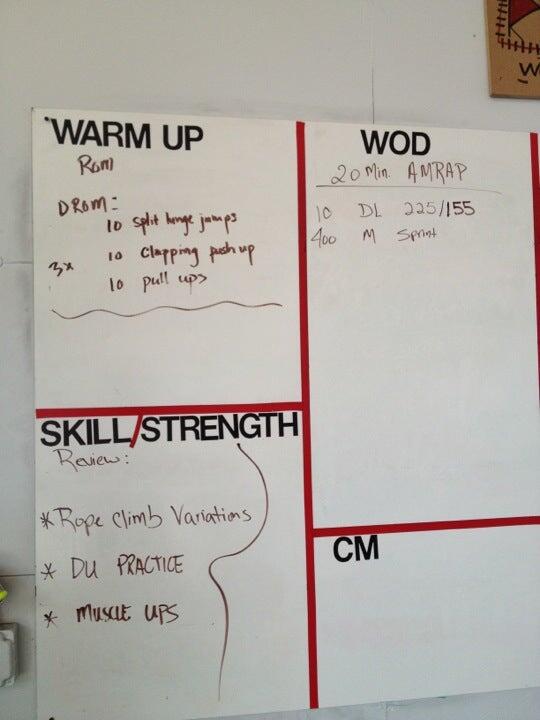 WARM UP
Rom
DROM:
10 split lunge jumps
3x 10 Clapping push up
10 pull ups
SKILL/STRENGTH
Review:
* Rope climb Variations
* DU PRACTICE
* MUSCLE UPS
WOD
20 Min. AMRAP
10 DL 225/155
400 M Sprint
CM